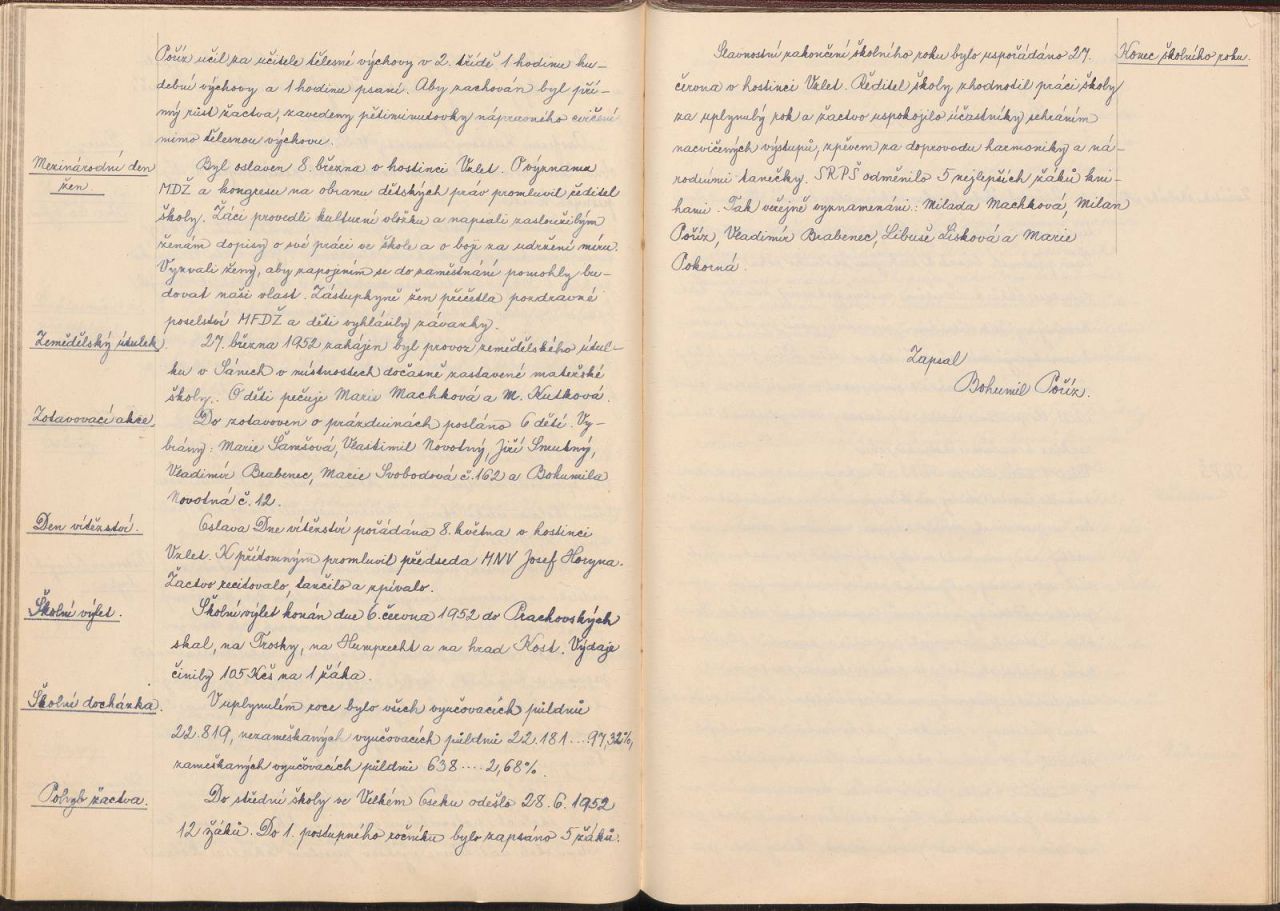 Poříz učil za učitele tělesné výchovy v 2. třídě 1 hodinu hu-
dební výchovy a 1 hodinu psaní. Aby zachován byl pří-
mý růst žactva, zavedeny pětiminutovky nápravného cvičení
mimo tělesnou výchovu.
Mezinárodní den
žen.
Byl oslaven 8. března v hostinci Vzlet. O významu
MDŽ a kongresu na obranu dětských práv promluvil ředitel
školy. Žáci provedli kulturní vložku a napsali zasloužilým
ženám dopisy o své práci ve škole a o boji za udržení míru.
Vyzvali ženy, aby zapojením se do zaměstnání pomohly bu-
dovat naši vlast. Zástupkyně žen přečetla pozdravné
poselství MFDŽ a děti vyhlásily závazky.
Zemědělský útulek
27. března 1952 zahájen byl provoz zemědělského útul-
ku v Sánech v místnostech dočasně zastavené mateřské
školy. O děti pečuje Marie Machková a M. Kutková.
Zotavovací akce.
Do zotavoven o prázdninách posláno 6 dětí. Vy-
brány: Marie Šamšová, Vlastimil Novotný, Jiří Smutný,
Vladimír Brabenec, Marie Svobodová č. 162 a Bohumila
Novotná č. 12.
Den vítězství.
Oslava Dne vítězství pořádána 8. května v hostinci
Vzlet. K přítomným promluvil předseda MNV Josef Horyna.
Žactvo recitovalo, tančilo a zpívalo.
Školní výlet.
Školní výlet konán dne 6. června 1952 do Prachovských
skal, na Trosky, na Humprecht a na hrad Kost. Výdaje
činily 105 Kčs na 1 žáka.
Školní docházka.
V uplynulém roce bylo všech vyučovacích půldnů
22.819, nezameškaných vyučovacích půldnů 22.181 ... 97,32%,
zameškaných vyučovacích půldnů 638 .... 2,68%.
Pohyb žactva.
Do střední školy ve Velkém Oseku odešlo 28. 6. 1952
12 žáků. Do 1. postupného ročníku bylo zapsáno 5 žáků.
Konec školního roku.
Slavnostní zakončení školního roku bylo uspořádáno 27.
června v hostinci Vzlet. Ředitel školy zhodnotil práci školy
za uplynulý rok a žactvo uspokojilo účastníky sehráním
nacvičených výstupů, zpěvem za doprovodu harmoniky a ná-
rodními tanečky. SRPŠ odměnilo 5 nejlepších žáků kni-
hami. Tak veřejně vyznamenáni: Milada Machková, Milan
Poříz, Vladimír Brabenec, Libuše Lisková a Marie
Pokorná.
Zapsal
Bohumil Poříz.